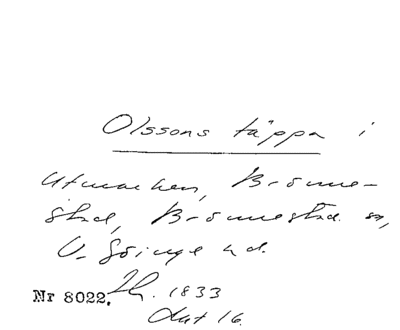 Olssons täppa i
Utmarken, Brönne-
stad, Brönnestad sn,
V. Göinge hd.
Nr 8022. Lh. 1833
Akt 16.